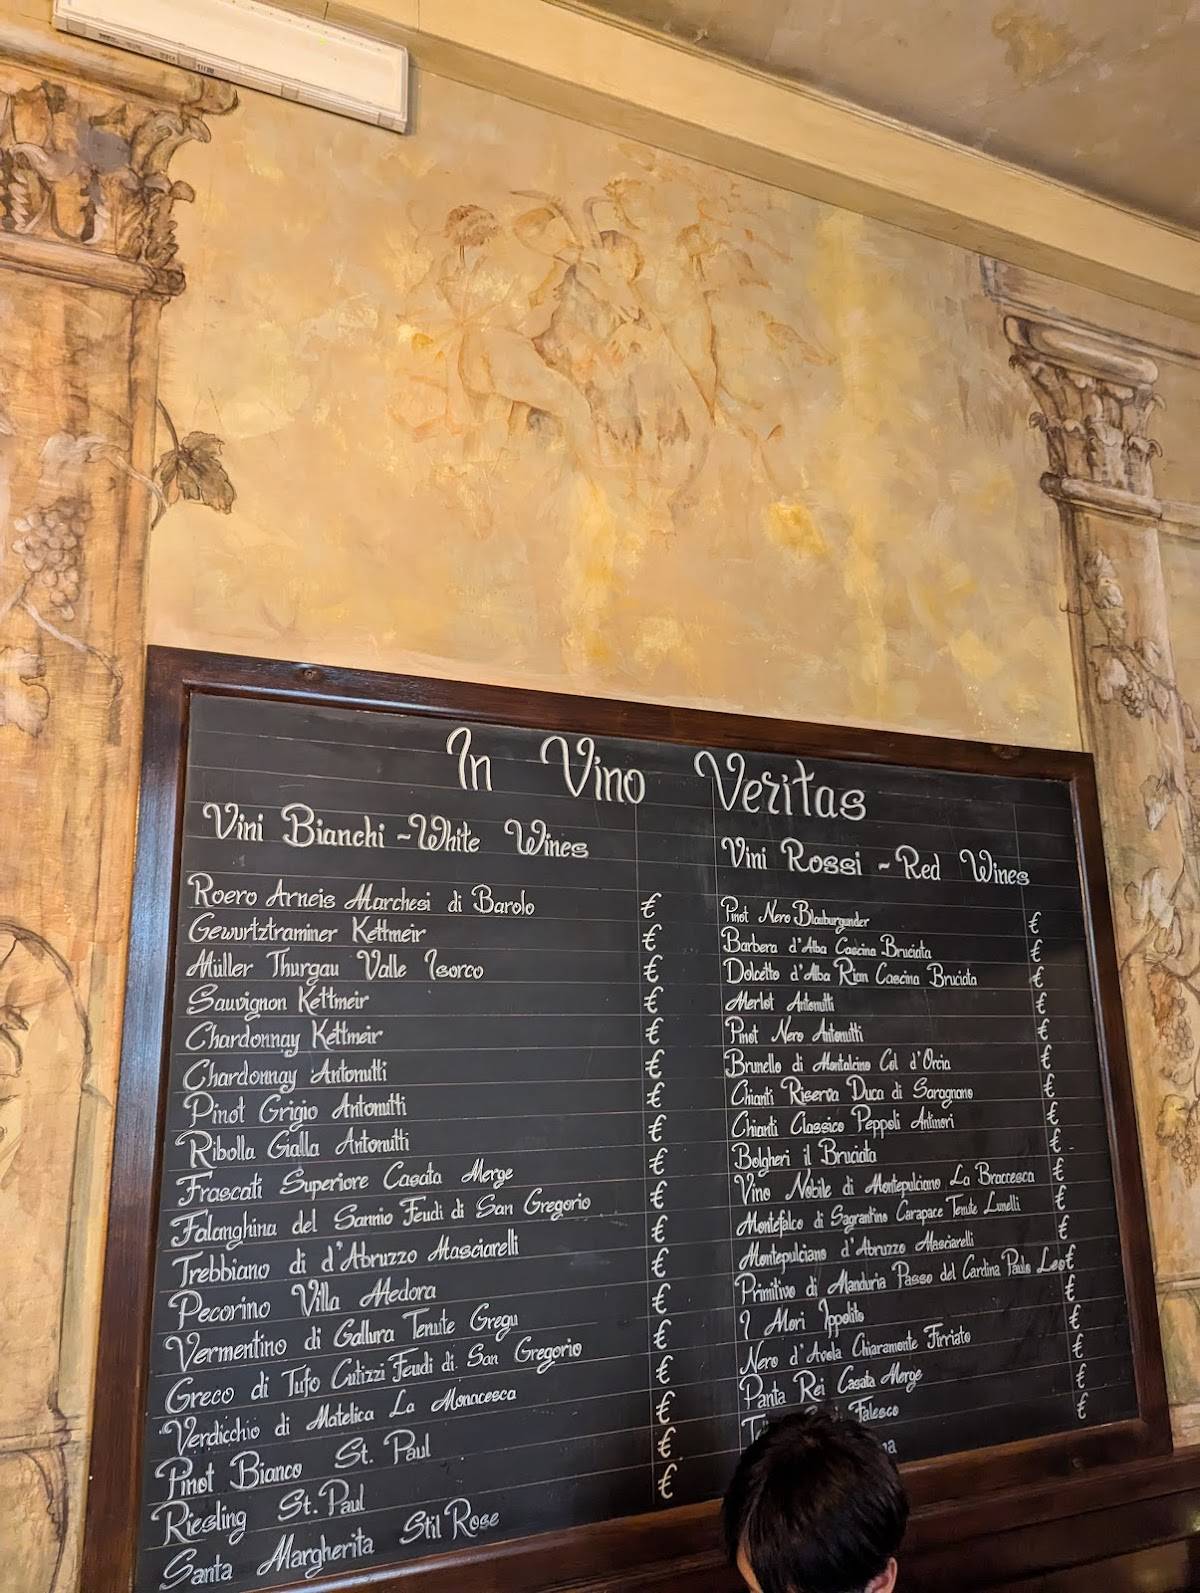 In Vino Veritas
Vini Bianchi ~ White Wines
Roero Arneis Marchesi di Barolo €
Gewurtztraminer Kettmeir €
Müller Thurgau Valle Isarco €
Sauvignon Kettmeir €
Chardonnay Kettmeir €
Chardonnay Antonutti €
Pinot Grigio Antonutti €
Ribolla Gialla Antonutti €
Frascati Superiore Casata Merge €
Falanghina del Sannio Feudi di San Gregorio €
Trebbiano di d'Abruzzo Masciarelli €
Pecorino Villa Medora €
Vermentino di Gallura Tenute Gregu €
Greco di Tufo Cutizzi Feudi di San Gregorio €
Verdicchio di Matelica La Monacesca €
Pinot Bianco St. Paul €
Riesling St. Paul €
Santa Margherita Stil Rose €
Vini Rossi ~ Red Wines
Pinot Nero Blauburgunder €
Barbera d'Alba Cascina Bruciata €
Dolcetto d'Alba Rian Cascina Bruciata €
Merlot Antonutti €
Pinot Nero Antonutti €
Brunello di Montalcino Col d'Orcia €
Chianti Riserva Duca di Saragnano €
Chianti Classico Peppoli Antinori €
Bolgheri il Bruciato €
Vino Nobile di Montepulciano La Braccesca €
Montefalco di Sagrantino Carapace Tenute Lunelli €
Montepulciano d'Abruzzo Masciarelli €
Primitivo di Manduria Passo del Cardina Paulo Leo €
I Mori Ippolito €
Nero d'Avola Chiaramonte Firriato €
Panta Rei Casata Merge €
Falesco €